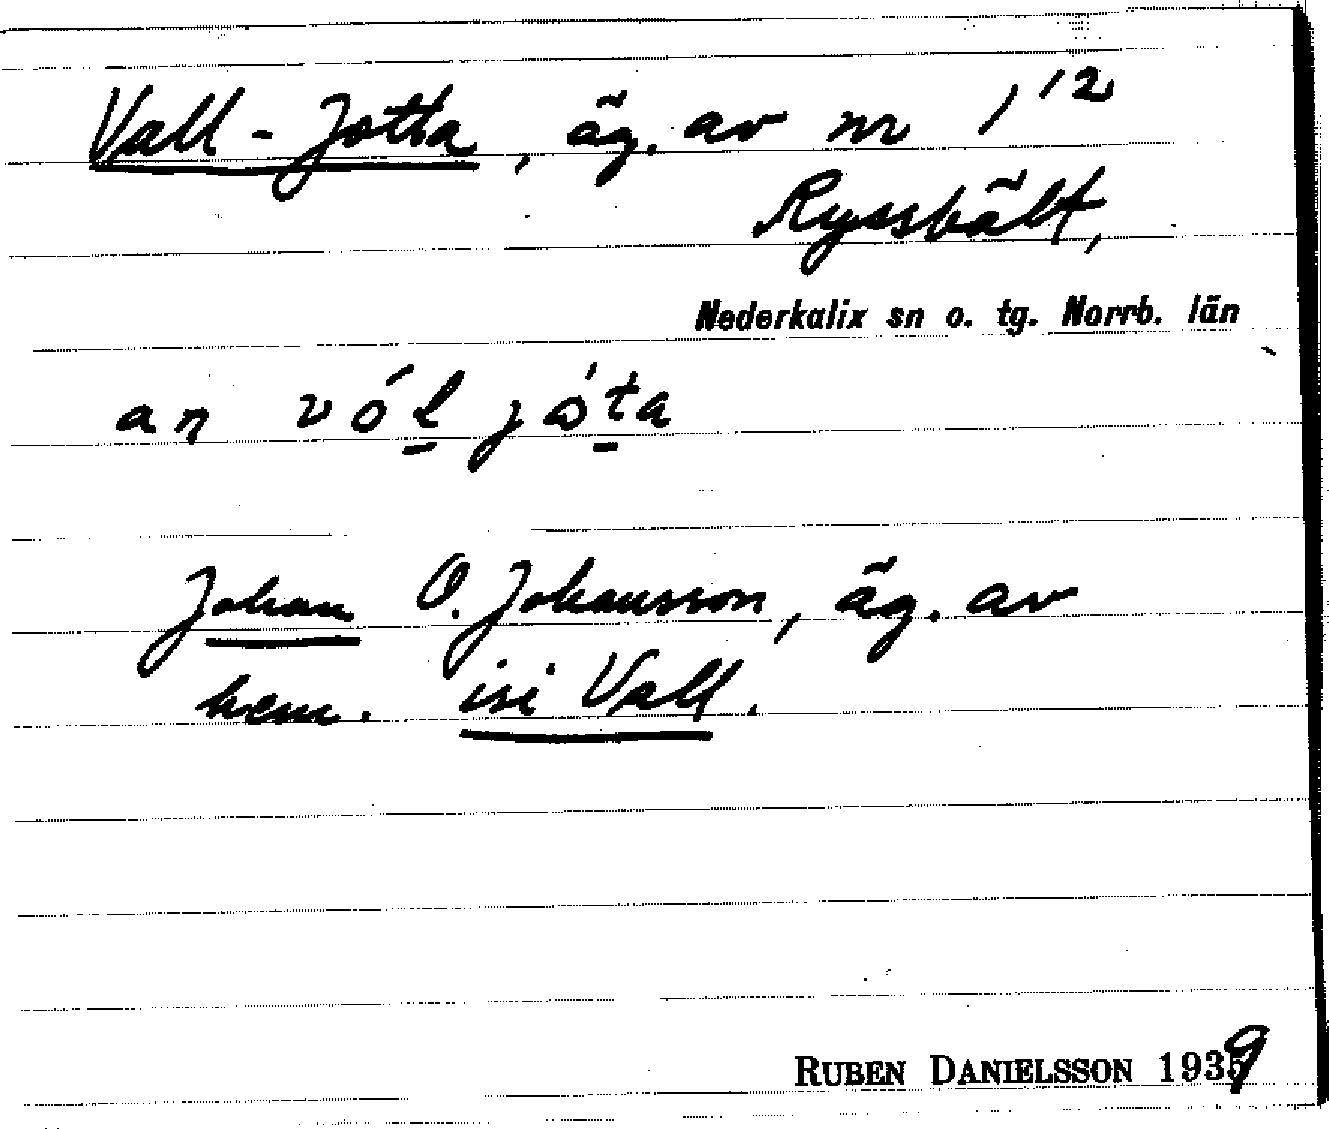 Vall-Jotta, äg. av nr 1¹²
Ryssbält,
Nederkalix sn o. tg. Norrb. län
an vól jóta
Johan O. Johansson, äg. av
hem. isi Vall.
RUBEN DANIELSSON 1939